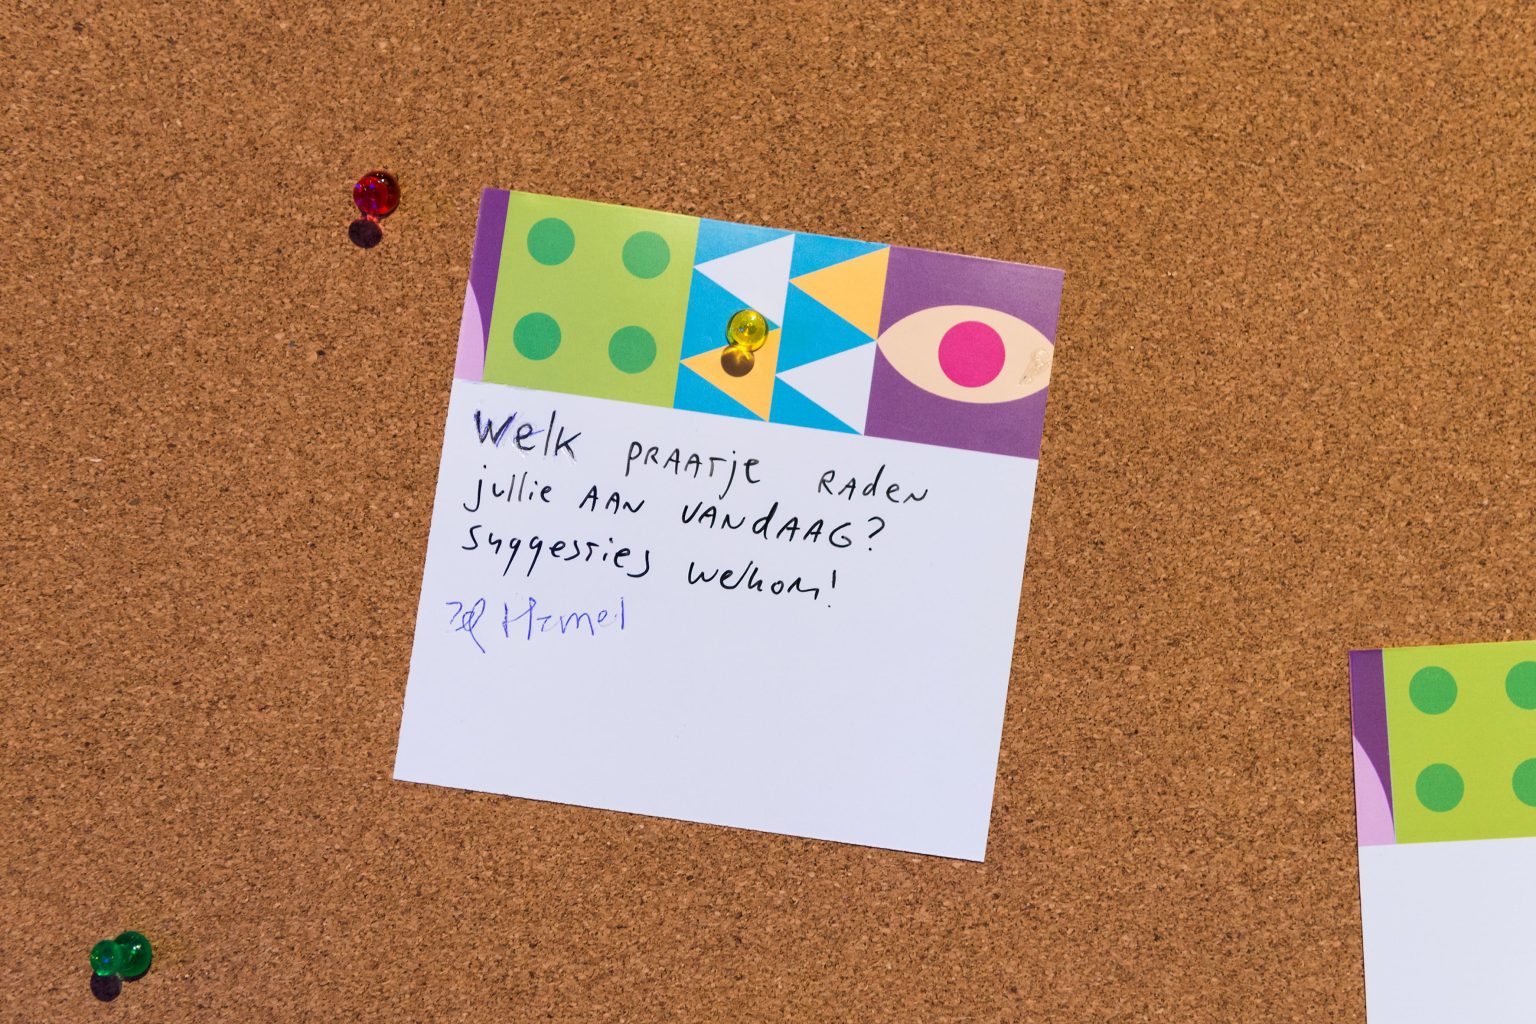 Welk praatje raden
jullie aan vandaag?
suggesties welkom!